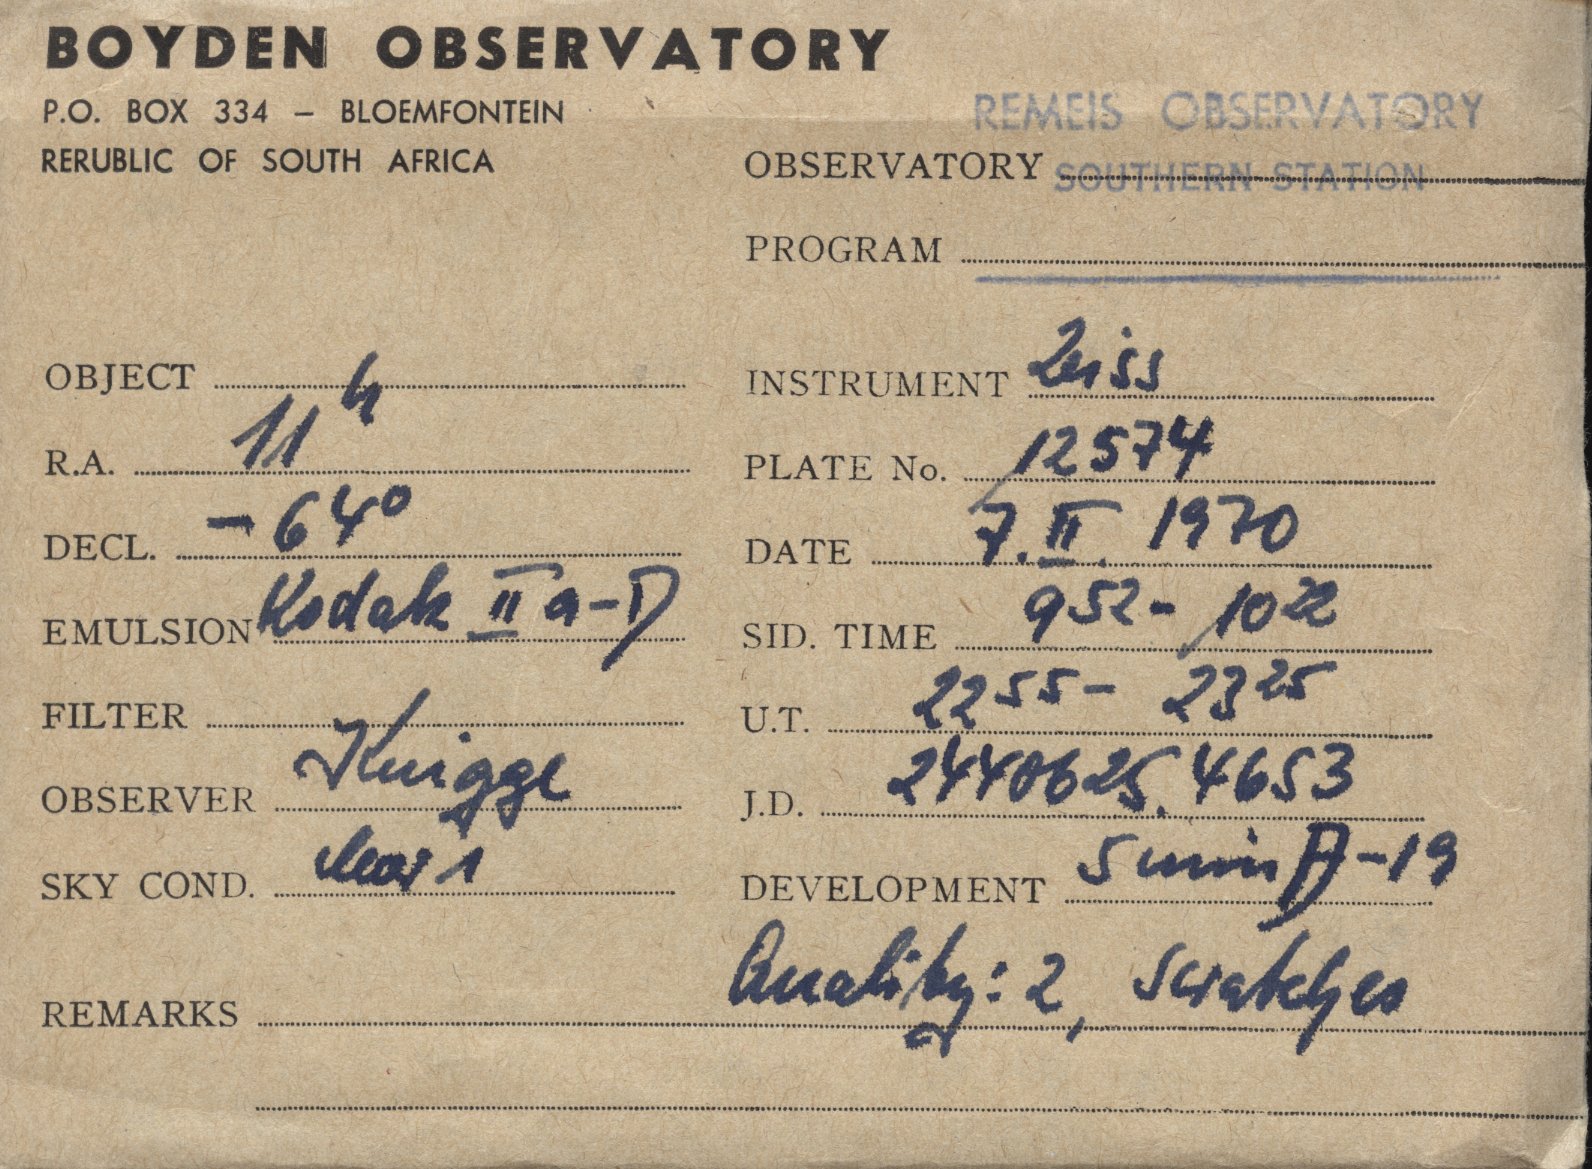 BOYDEN OBSERVATORY
P.O. BOX 334 – BLOEMFONTEIN
RERUBLIC OF SOUTH AFRICA
REMEIS OBSERVATORY
OBSERVATORY SOUTHERN STATION
PROGRAM
OBJECT
R.A. 11h
DECL. -64°
EMULSION Kodak IIa-D
FILTER
OBSERVER Knigge
SKY COND. clear 1
INSTRUMENT Zeiss
PLATE No. 12574
DATE 7.II.1970
SID. TIME 9 52 - 10 22
U.T. 22 55 - 23 25
J.D. 2440625.4653
DEVELOPMENT 5 min D-19
REMARKS Quality: 2, Scratches